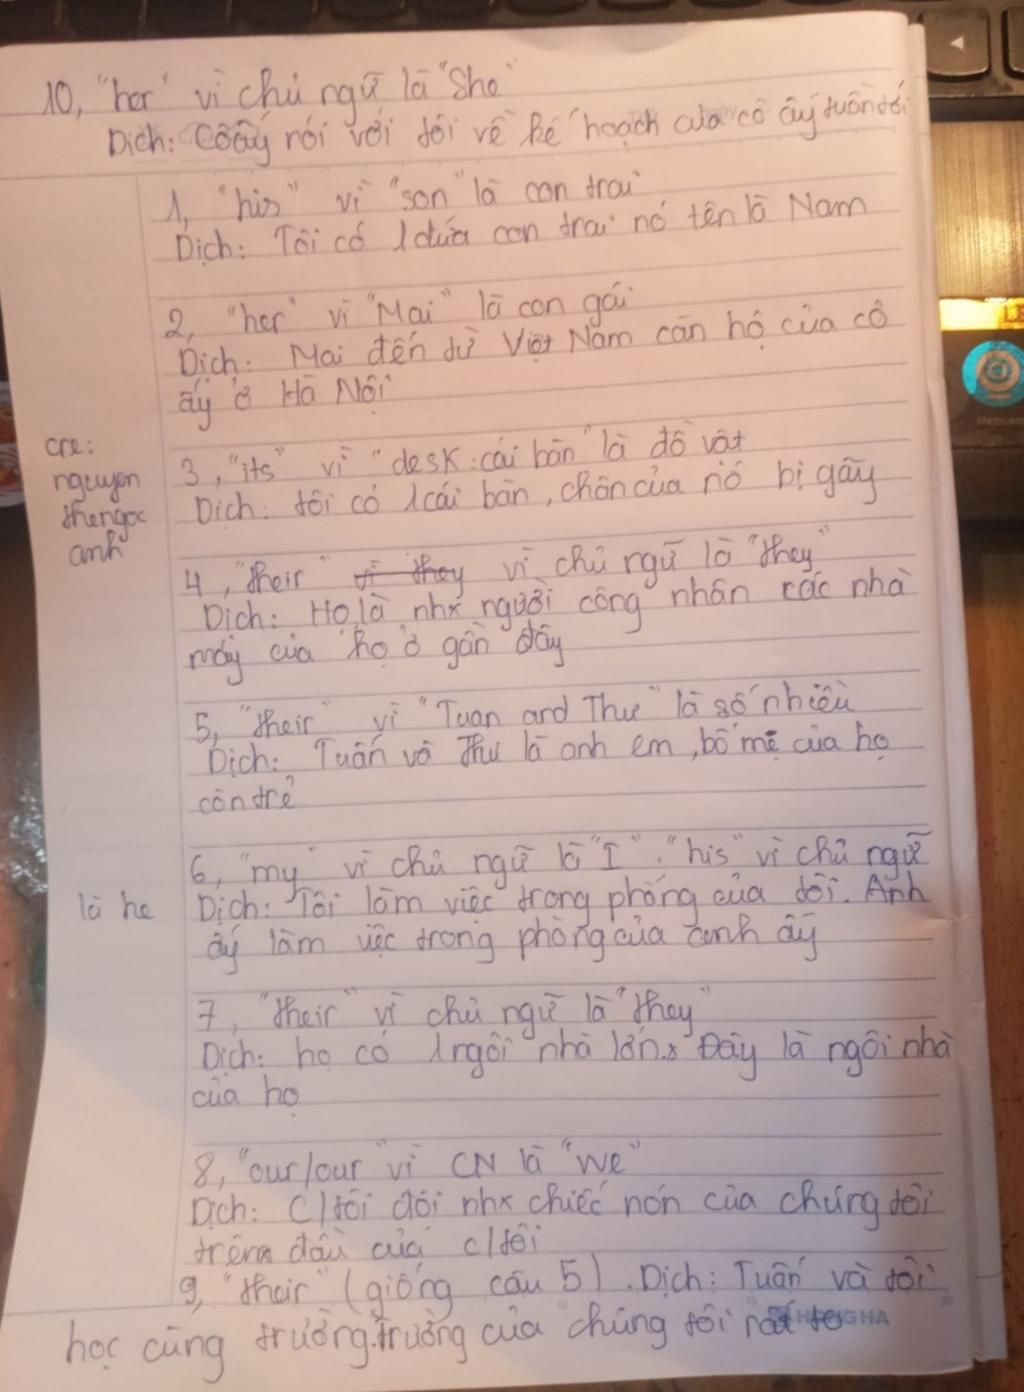 10, "her" vì chủ ngữ là "She"
Dịch: Cô ấy nói với tôi về kế hoạch của cô ấy tuần tới
1, "his" vì "son" là con trai
Dịch: Tôi có 1 đứa con trai nó tên là Nam
2, "her" vì "Mai" là con gái
Dịch: Mai đến từ Việt Nam căn hộ của cô
ấy ở Hà Nội
cre:
nguyen
thengoc
anh
3, "its" vì "desk: cái bàn" là đồ vật
Dịch: tôi có 1 cái bàn, chân của nó bị gãy
4, "their" vì they vì chủ ngữ là "they"
Dịch: Họ là nhx người công nhân các nhà
máy của họ ở gần đây
5, "their" vì "Tuan and Thu" là số nhiều
Dịch: Tuấn và Thu là anh em, bố mẹ của họ
còn trẻ
6, "my" vì chủ ngữ là "I". "his" vì chủ ngữ
là he
Dịch: Tôi làm việc trong phòng của tôi. Anh
ấy làm việc trong phòng của anh ấy
7, "their" vì chủ ngữ là "they"
Dịch: họ có 1 ngôi nhà lớn. Đây là ngôi nhà
của họ
8, "our/our" vì CN là "We"
Dịch: C/tôi đội nhx chiếc nón của chúng tôi
trên đầu của c/tôi
9, "their" (giống câu 5). Dịch: Tuấn và tôi
học cùng trường. Trường của chúng tôi rất to
HỒNG HÀ
Webcam